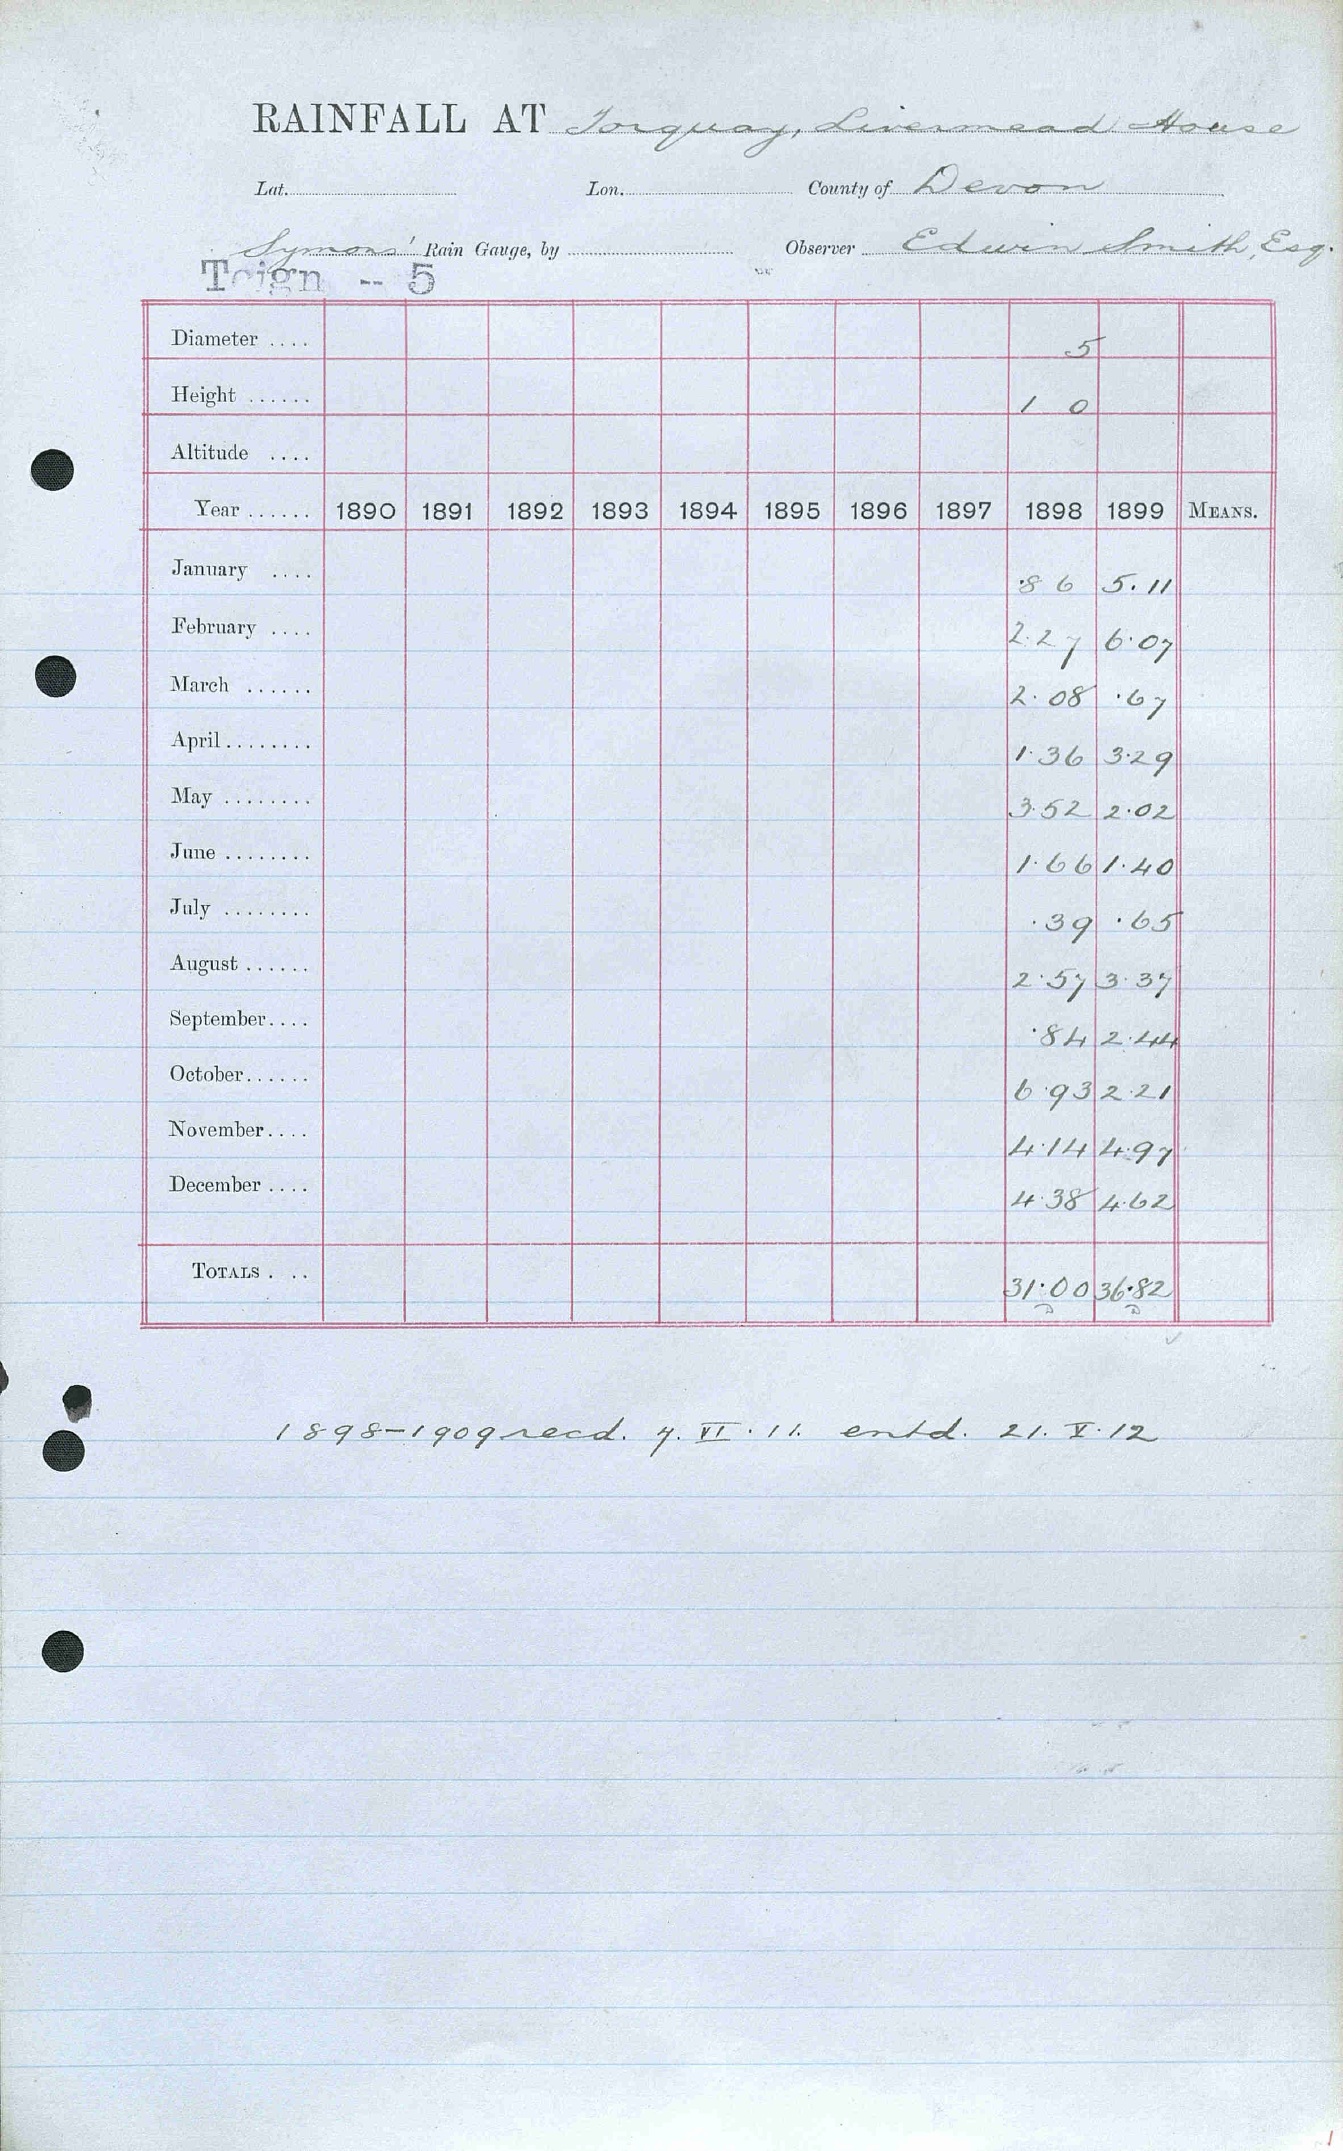 RAINFALL AT Torquay, Livermead House
Lat. Lon. County of Devon
Symons' Rain Gauge, by Observer Edwin Smith, Esq.
Teign -- 5
Diameter .... 5
Height ...... 1 0
Altitude ....
Year ...... 1890 1891 1892 1893 1894 1895 1896 1897 1898 1899 MEANS.
January .... ·86 5.11
February .... 2.27 6·07
March ...... 2·08 ·67
April........ 1·36 3·29
May ........ 3·52 2·02
June ........ 1·66 1·40
July ........ ·39 ·65
August ...... 2·57 3·37
September.... ·84 2·44
October...... 6·93 2·21
November.... 4·14 4·97
December .... 4·38 4·62
TOTALS . .. 31·00 36·82
1898-1909 recd. 7. VI. 11. entd. 21. V. 12